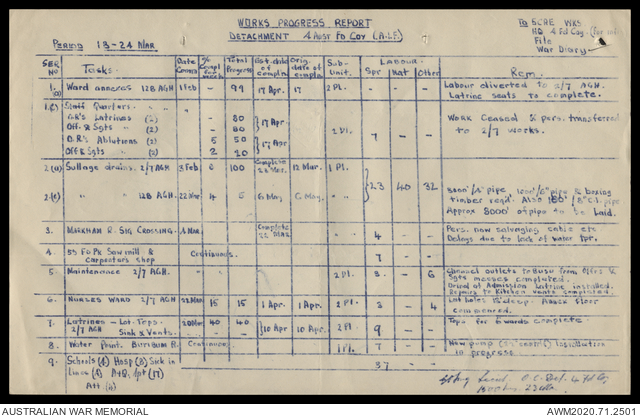 WORKS PROGRESS REPORT
DETACHMENT 4 AUST FD COY (A.I.F.)
To SCRE WKS.
HQ 4 Fd Coy.
File
War Diary
PERIOD 13-24 MAR
SER NO Tasks. Date Comm'd % Compl for week Total Progress Est. date of compl'n Orig. date of compl'n Sub-Unit. LABOUR. Spr Nat Other Rem.
1.(a) Ward annexes 128 AGH 1 Feb - 99 17 Apr. 17 2 Pl. Labour diverted to 2/7 AGH.
Latrine seats to complete.
1.(c) Staff Quarters.
O.R's Latrines (2) - 80
Off. & Sgts (2) - 80 17 Apr 17 Apr
O.R's Ablutions (2) 5 50 2 Pl. 7 - - Work Ceased & pers. transferred to 2/7 works.
Off & Sgts (2) 2 20
2.(a) Sullage drains. 2/7 AGH 3 Feb 100 Complete 12 Mar. 1 Pl.
23 40 32
2.(c) " " 128 AGH. 22 Mar 4 5 6 May 6 May. pipe & boxing
timber reqd. Also C.I. pipe
Approx 8000' of pipe to be laid.
3. MARKHAM R. SIG CROSSING. Complete 22 MAR 4 - - Pers. now salvaging cable etc
Delays due to lack of water tpt.
4. 55 Fd Pk Sawmill &
Carpenters shop Continuous 7 - -
5. Maintenance 2/7 AGH 2 Pl. 3 - 6 Channel outlets to Busu from Offrs &
Sgts messes completed.
Drain at Admission Latrine installed.
Repairs to Kitchen vents completed.
6. NURSES WARD 2/7 AGH 22 Mar 15 15 1 Apr. 1 Apr. 2 Pl. 3 - 4 Lat holes 12' deep. Annex floor
commenced.
7. Latrines - Lat. Tops.
2/7 AGH Sink & Vents. 20 Mar 40 40 10 Apr 10 Apr. 2 Pl. 9 - Tops for 8 wards complete.
8. Water Point. BUTIBUM R. Continuous 1 Pl. 7 - - New pump installation
in progress.
9. Schools (4) Hosp (8) Sick in
Lines (4)
Att. 37 - -
Lieut. O.C. Det. 4 Fd Coy
AUSTRALIAN WAR MEMORIAL
AWM2020.71.2501